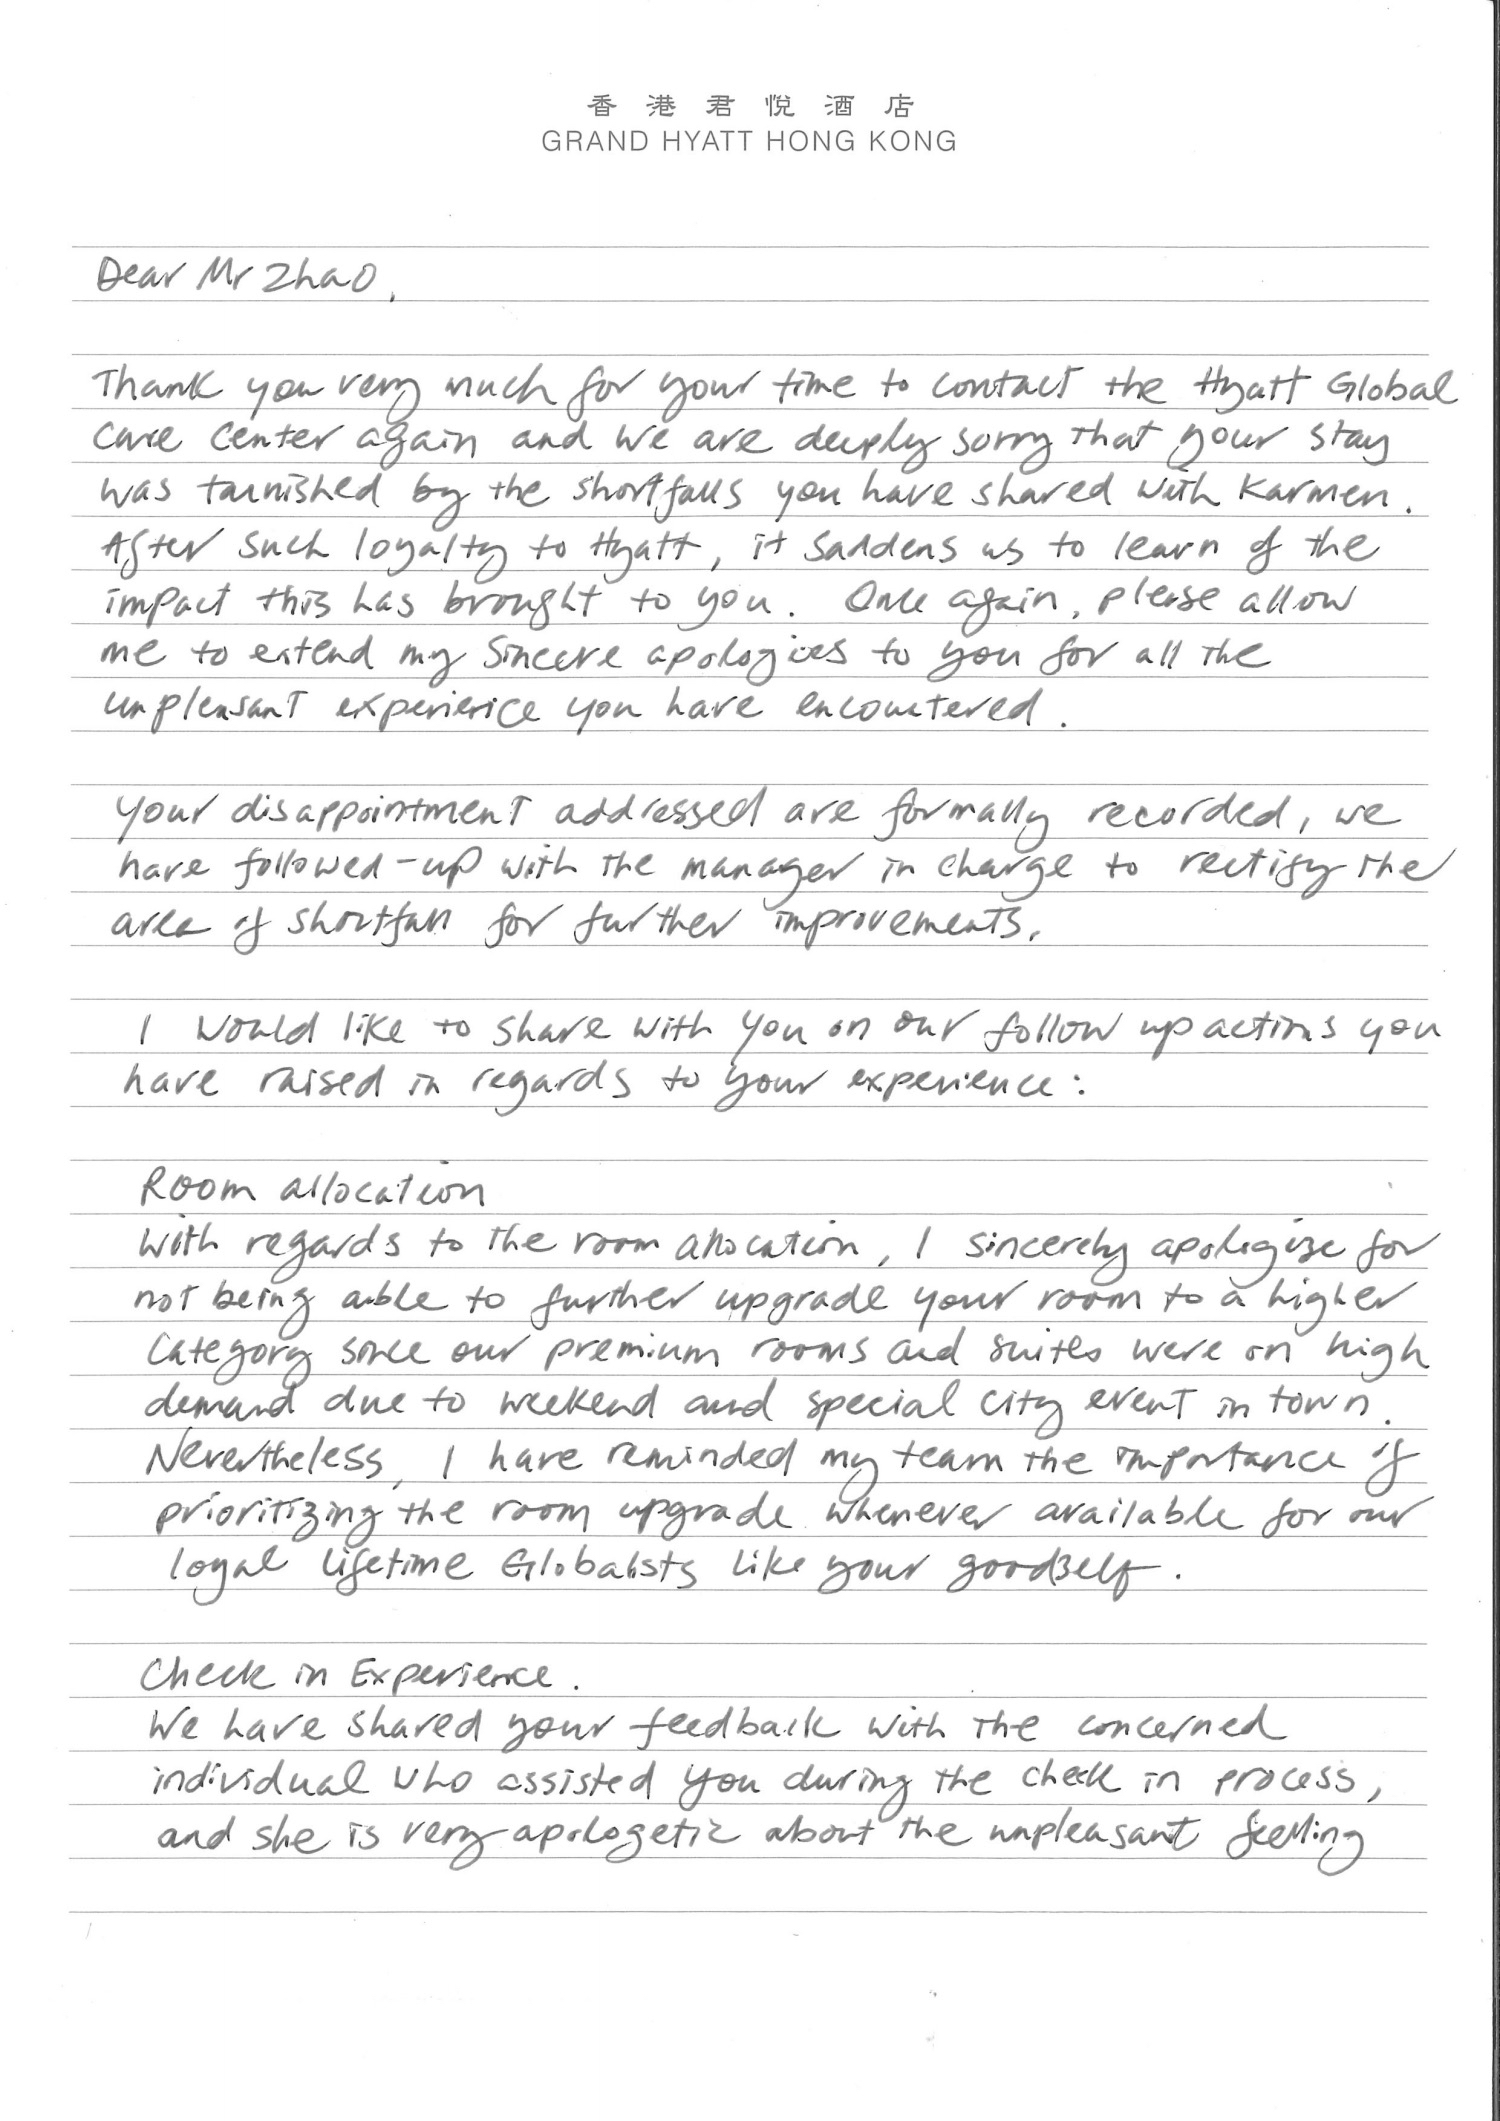 香港君悅酒店
GRAND HYATT HONG KONG
Dear Mr Zhao,
Thank you very much for your time to contact the Hyatt Global
Care Center again and we are deeply sorry that your stay
was tarnished by the shortfalls you have shared with Karmen.
After such loyalty to Hyatt, it saddens us to learn of the
impact this has brought to you. Once again, please allow
me to extend my sincere apologies to you for all the
unpleasant experience you have encountered.
Your disappointment addressed are formally recorded, we
have followed-up with the manager in charge to rectify the
area of shortfall for further improvements.
I would like to share with you on our follow up actions you
have raised in regards to your experience:
Room allocation
With regards to the room allocation, I sincerely apologize for
not being able to further upgrade your room to a higher
category since our premium rooms and suites were on high
demand due to weekend and special city event in town.
Nevertheless, I have reminded my team the importance of
prioritizing the room upgrade whenever available for our
loyal lifetime Globalists like your goodself.
Check in Experience.
We have shared your feedback with the concerned
individual who assisted you during the check in process,
and she is very apologetic about the unpleasant feeling